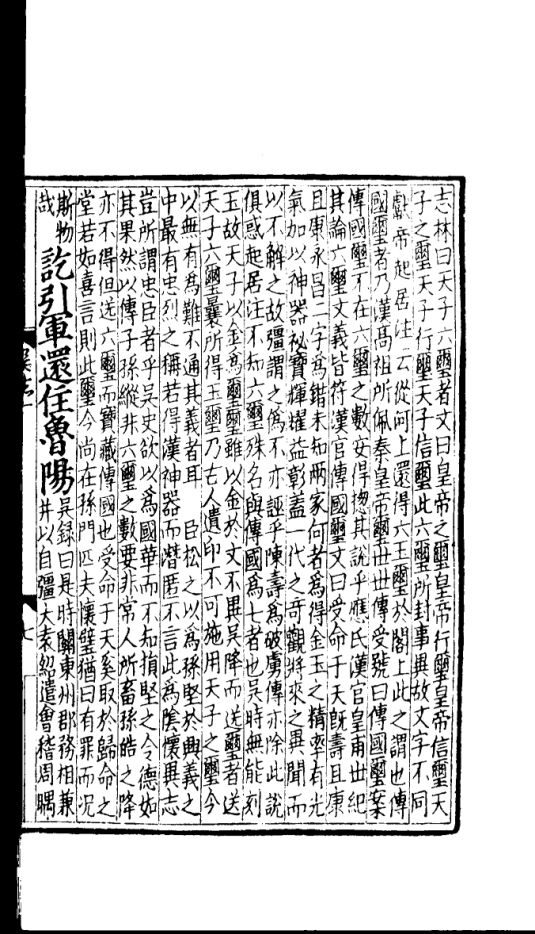 志林曰天子六璽者文曰皇帝之璽皇帝行璽皇帝信璽天
子之璽天子行璽天子信璽此六璽所封事異故文字不同
獻帝起居注云從河上還得六玉璽於閣上此之謂也傳
國璽者乃漢高祖所佩秦皇帝璽世世傳受號曰傳國璽案
傳國璽不在六璽之數安得揔其說乎應氏漢官皇甫世紀
其論六璽文義皆符漢官傳國璽文曰受命于天旣壽且康
且康永昌二字爲錯未知兩家何者爲得金玉之精率有光
氣加以神器祕寶輝耀益彰蓋一代之奇觀將來之異聞而
以不解之故彊謂之僞不亦誣乎陳壽爲破虜傳亦除此說
俱惑起居注不知六璽殊名與傳國爲七者也吳時無能刻
玉故天子以金爲璽璽雖以金於文不異吳降而送璽者送
天子六璽曩所得玉璽乃古人遺印不可施用天子之璽今
以無有爲難不通其義者耳 臣松之以爲孫堅於興義之
中最有忠烈之稱若得漢神器而潛匿不言此爲陰懷異志
豈所謂忠臣者乎吳史欲以爲國華而不知損堅之令德如
其果然以傳子孫縱非六璽之數要非常人所畜孫皓之降
亦不得但送六璽而寶藏傳國也受命于天奚取於歸命之
堂若如喜言則此璽今尚在孫門匹夫懷璧猶曰有罪而况
斯物
哉
訖引軍還住魯陽
吳錄曰是時關東州郡務相兼
并以自彊大袁紹遣會稽周㬂
七